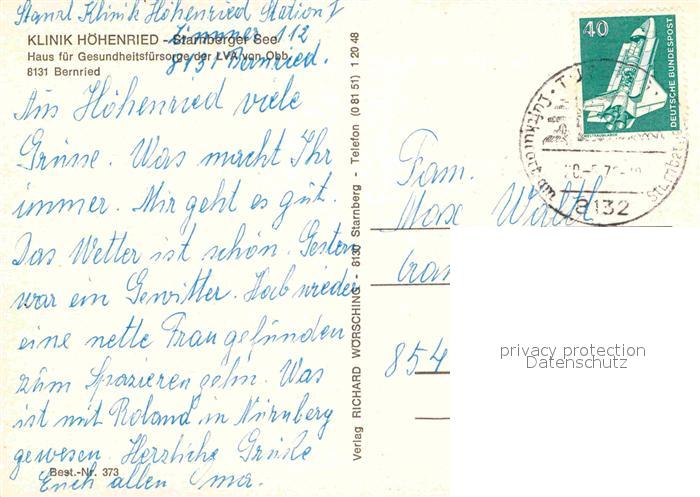 Klinik Höhenried Station I
Zimmer 112
8131 Bernried.
KLINIK HÖHENRIED - Starnberger See
Haus für Gesundheitsfürsorge der LVA von Obb.
8131 Bernried
Aus Höhenried viele
Grüsse. Was macht Ihr
immer. Mir geht es gut.
Das Wetter ist schön. Gestern
war ein Gewitter. Hab wieder
eine nette Frau gefunden
zum Spazieren gehn. Was
ist mit Roland in Nürnberg
gewesen. Herzliche Grüße
Euch allen
Best.-Nr. 373
Verlag RICHARD WÖRSCHING - 8130 Starnberg - Telefon (0 81 51) 1 20 48
40
DEUTSCHE BUNDESPOST
Luftkurort am
Starnberger
8132
Fam.
Max Waltl
854
privacy protection
Datenschutz